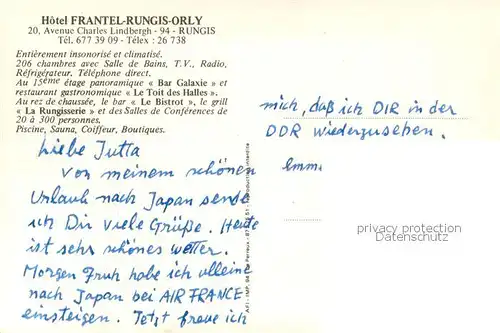 Hôtel FRANTEL-RUNGIS-ORLY
20, Avenue Charles Lindbergh - 94 - RUNGIS
Tél. 677 39 09 - Télex : 26 738
Entièrement insonorisé et climatisé.
206 chambres avec Salle de Bains, T.V., Radio,
Réfrigérateur. Téléphone direct.
Au 15ème étage panoramique « Bar Galaxie » et
restaurant gastronomique « Le Toit des Halles ».
Au rez de chaussée, le bar « Le Bistrot », le grill
« La Rungisserie » et des Salles de Conférences de
20 à 300 personnes.
Piscine, Sauna, Coiffeur, Boutiques.
Liebe Jutta
Von meinem schönen
Urlaub nach Japan sende
ich Dir viele Grüße. Heute
ist sehr schönes Wetter.
Morgen Fruh habe ich alleine
nach Japan bei AIR FRANCE
einsteigen. Jetzt freue ich
mich, daß ich DIR in der
DDR wiederzusehen.
privacy protection
Datenschutz